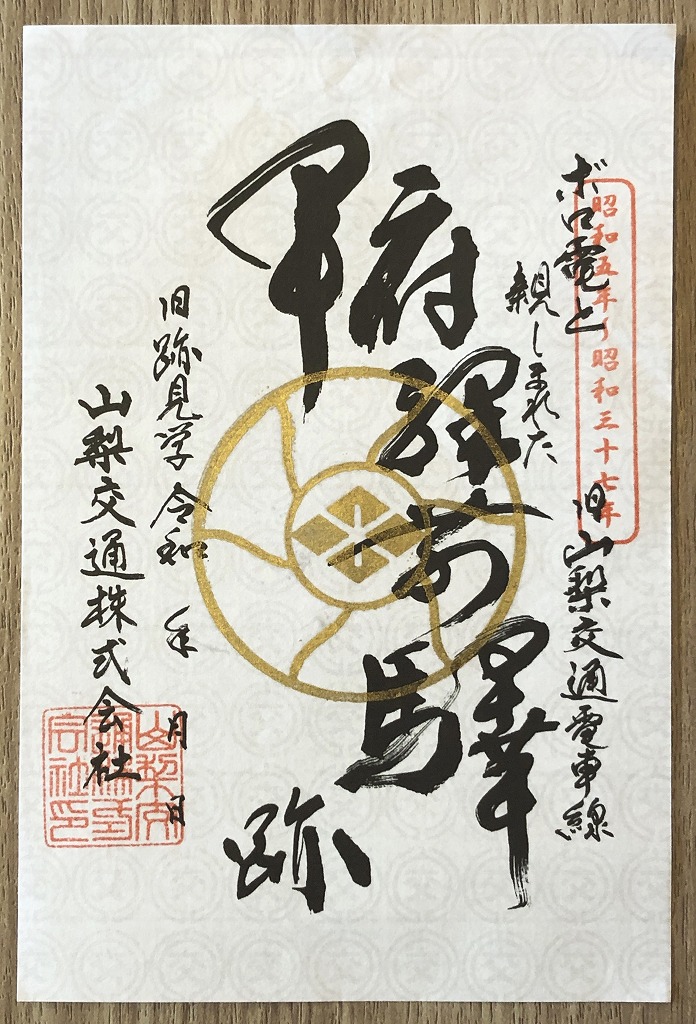 昭和五年〜昭和三十七年
ボロ電と
親しまれた
旧山梨交通電車線
甲府驛前驛跡
旧跡見学 令和 年 月 日
山梨交通株式会社
山梨交
通株式
会社印